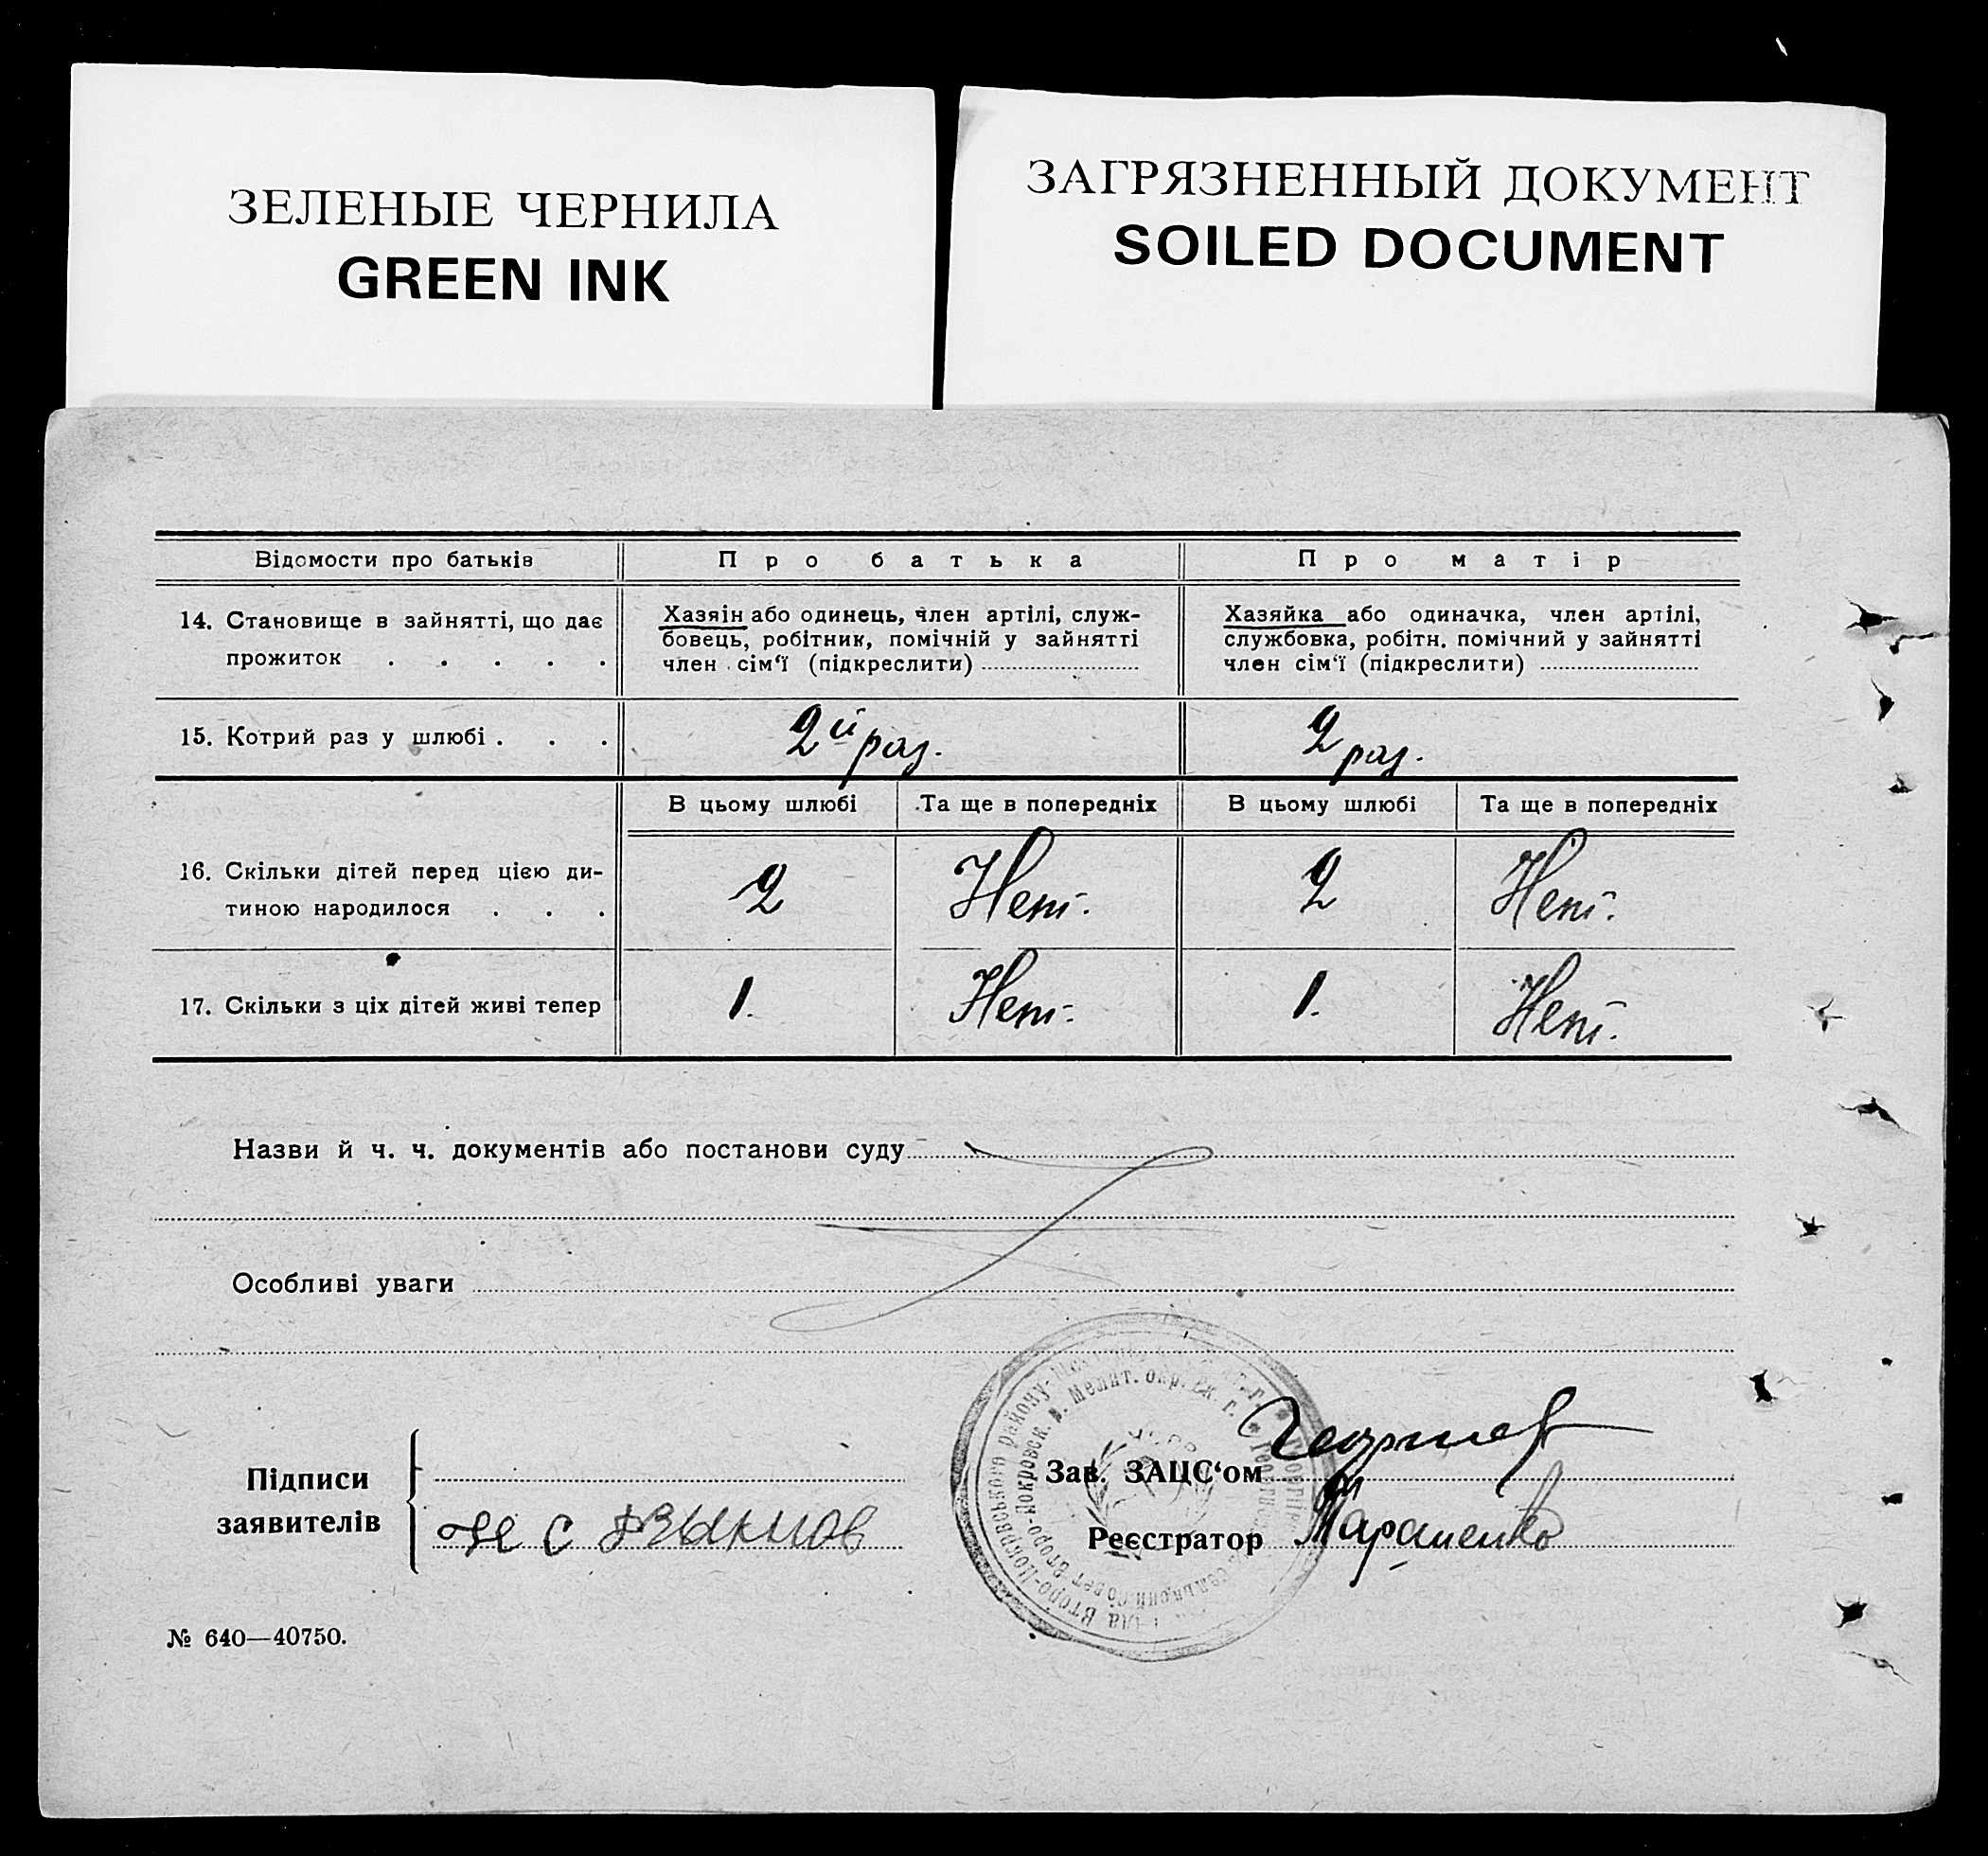 ЗЕЛЕНЫЕ ЧЕРНИЛА
GREEN INK
ЗАГРЯЗНЕННЫЙ ДОКУМЕНТ
SOILED DOCUMENT
Відомости про батьків
Про батька
Про матір
14. Становище в зайнятті, що дає
прожиток . . . . .
Хазяін або одинець, член артілі, служ-
бовець, робітник, помічній у зайнятті
член сім‘ї (підкреслити)
Хазяйка або одиначка, член артілі,
службовка, робітн. помічний у зайнятті
член сім‘ї (підкреслити)
15. Котрий раз у шлюбі . . .
2й раз.
2 раз.
В цьому шлюбі
Та ще в попередніх
В цьому шлюбі
Та ще в попередніх
16. Скільки дітей перед цією ди-
тиною народилося . . .
2
Нет.
2
Нет.
17. Скільки з ціх дітей живі тепер
1.
Нет.
1.
Нет.
Назви й ч. ч. документів або постанови суду
Особливі уваги
Підписи
заявителів
Зав. ЗАЦС‘ом
Реєстратор
Второ-Покровського району
Мелит. окр.
№ 640—40750.